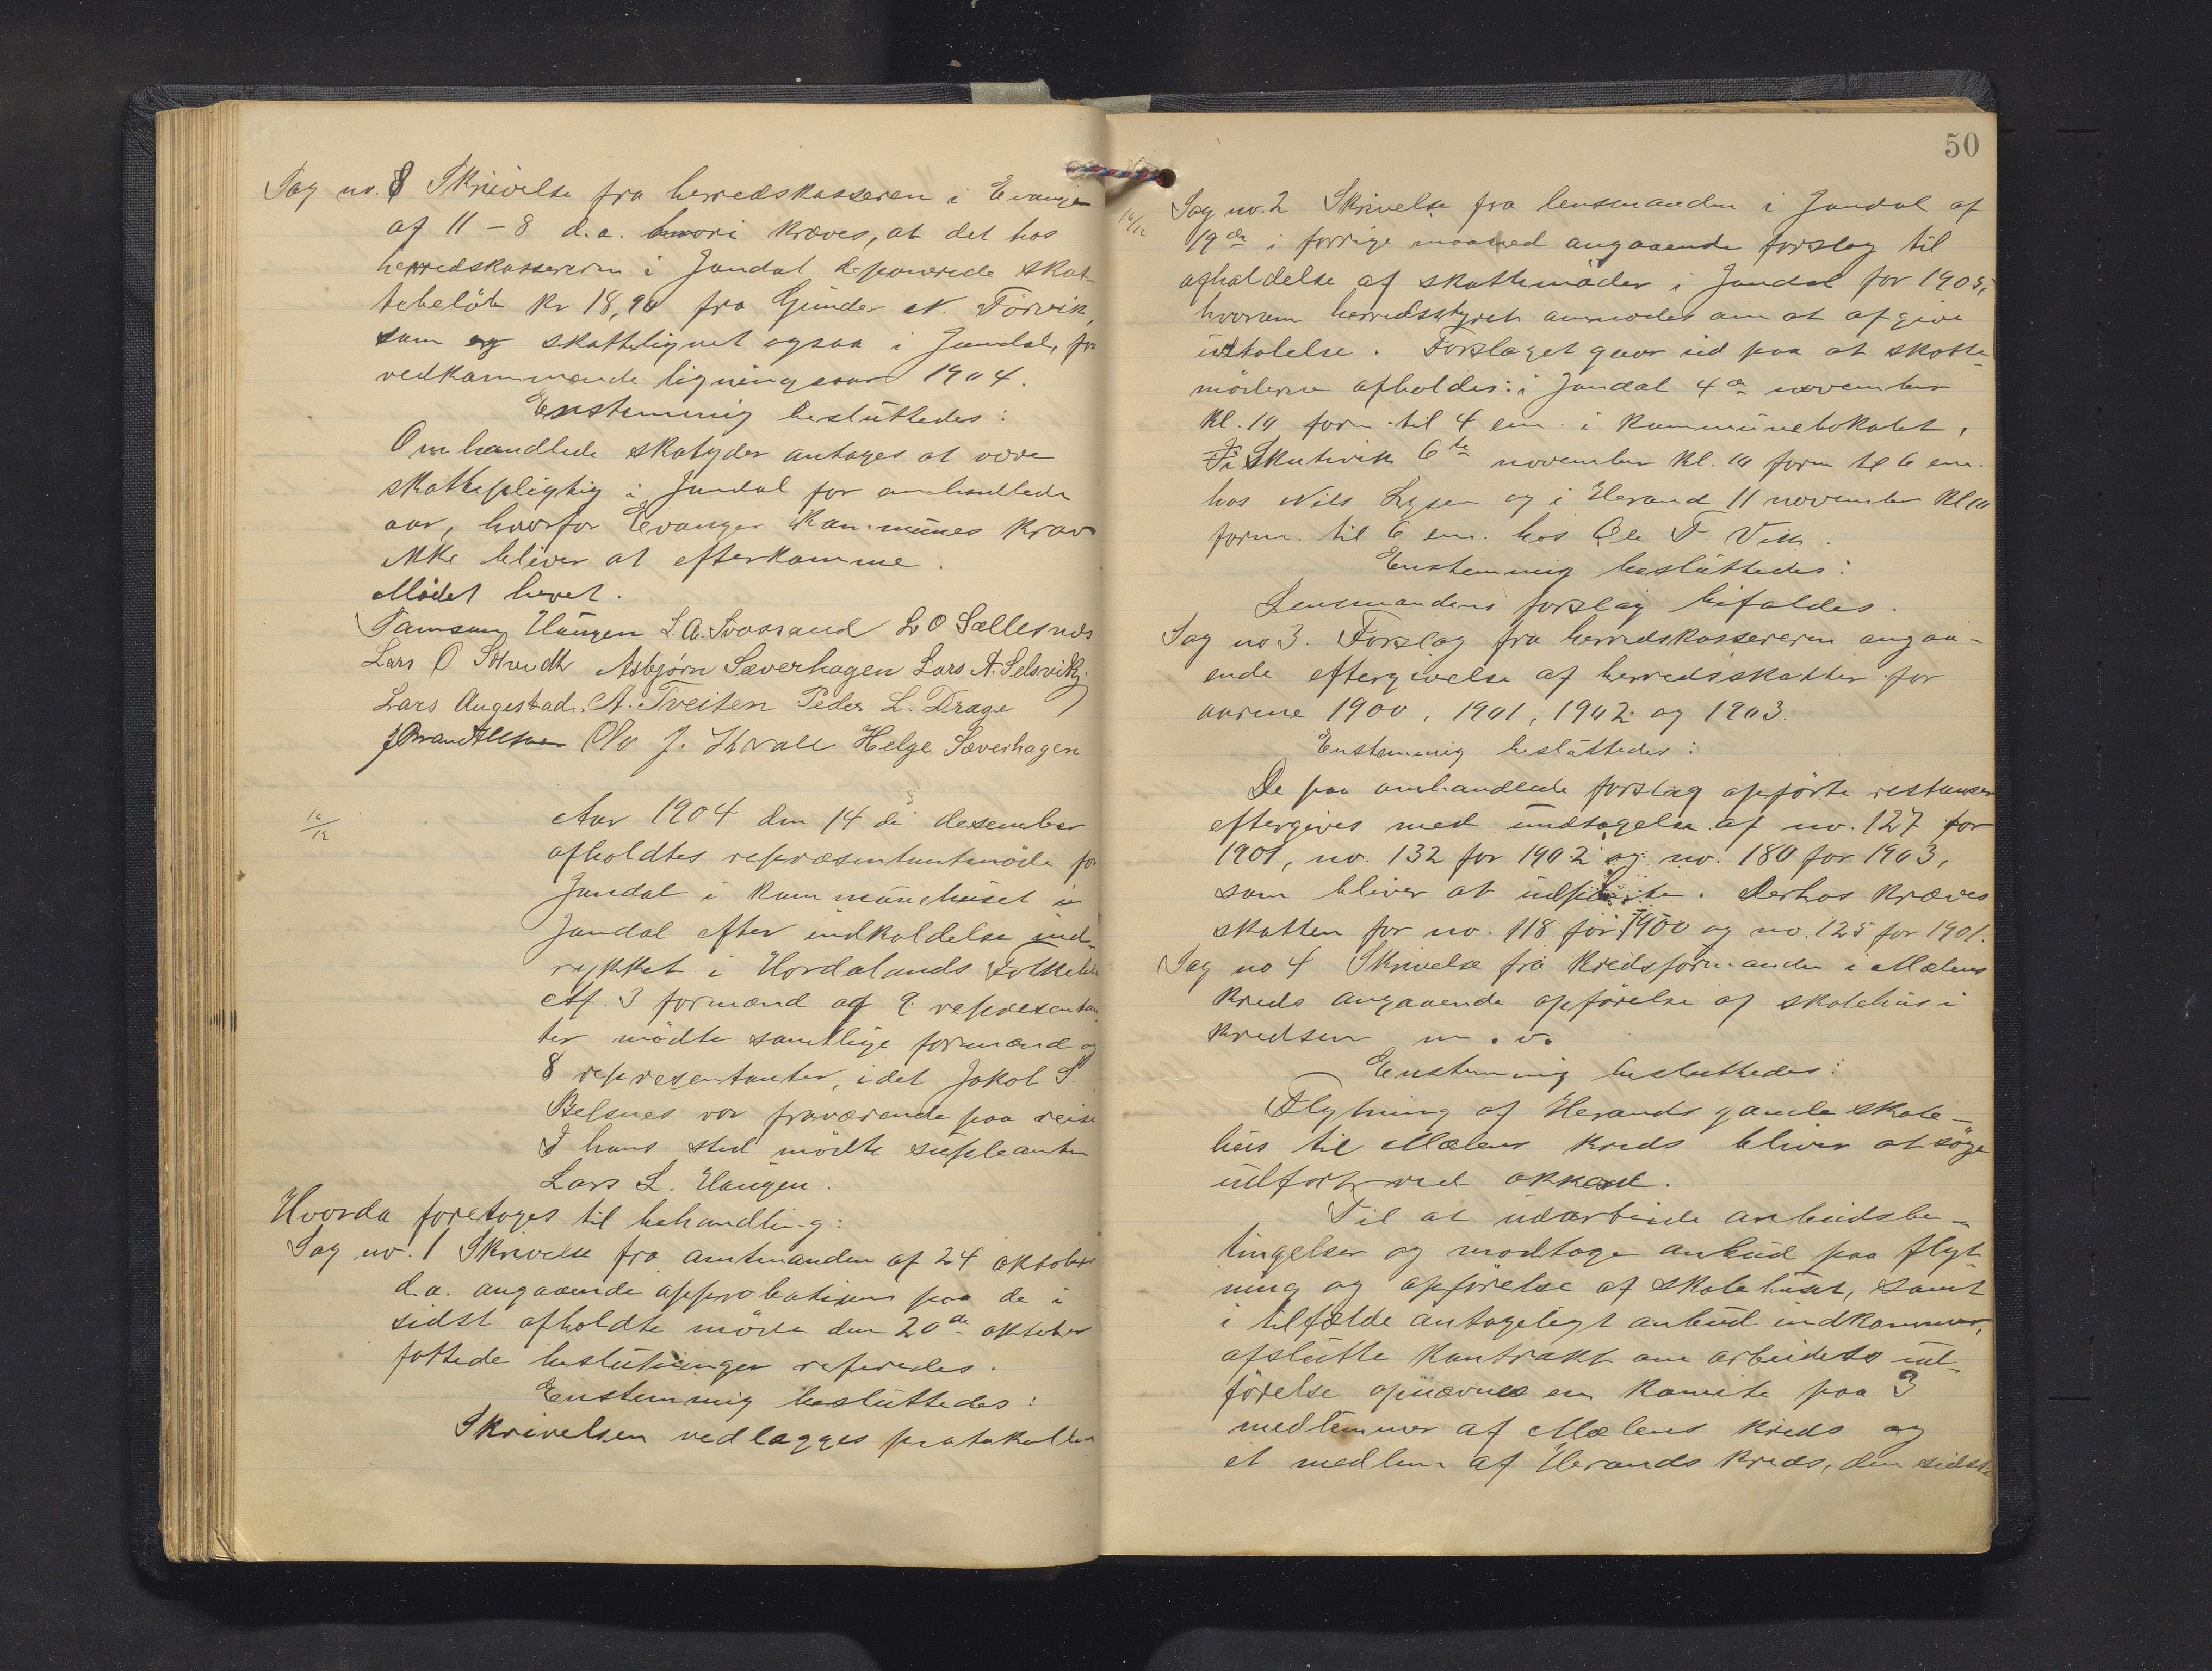 Sag no. 8 Skrivelse fra herredskasseren i Evanger
af 11 - 8 d.a. hvori kræves, at det hos
herredskassereren i Jondal deponerede skat-
tebeløb kr 18,90 fra Gunder N. Tørvik,
som er skattelignet ogsaa i Jondal, for
vedkommende ligningsaar 1904.
Enstemmig besluttedes:
Omhandlede skatyder antages at være
skattepligtig i Jondal for omhandlede
aar, hvorfor Evanger kommunes krav
ikke bliver at efterkomme.
Mødet hevet.
Samson Haugen L.A. Svaasand L O Sællesnes
Lars O Asbjørn Sæverhagen Lars A. Selsvik
Lars Augestad. A. Tveiten Peder L. Drage
Ola J. Kvale Helge Sæverhagen
14/12
Aar 1904 den 14 de desember
afholdtes repræsentantmøde for
Jondal i kommunehuset i
Jondal efter indkaldelse ind-
rykket i Hordalands Folkeblad
Af 3 formænd og 9 represantan-
ter mødte samtlige formænd og
8 represantanter, idet Jakob S.
Belsnes var fraværende paa reise
I hans sted mødte supleanten
Lars L. Haugen.
Hvorda foretoges til behandling:
Sag no. 1 Skrivelse fra amtmanden af 24 oktober
d.a. angaaende approbation paa de i
sidst afholdte møde den 20de oktober
fattede beslutninger refereredes.
Enstemmig besluttedes:
Skrivelsen vedlægges protokollen
50
14/12
Sag no. 2 Skrivelse fra lensmanden i Jondal af
19de i forrige maaned angaaende forslag til
afholdelse af skattemøder i Jondal for 1905,
hvorom herredsstyret anmodes om at afgive
udtalelse. Forslaget gaar ud paa at skatte-
møderne afholdes: i Jondal 4de november
kl. 10 form. til 4 em. i kommunelokalet,
i Skutevik 6te november kl. 10 form til 6 em.
hos Nils Lysen og i Herand 11 november kl 10
form. til 6 em. hos Ole T. Vik.
Enstemmig besluttedes:
Lensmandens forslag bifaldes.
Sag no 3. Forslag fra herredskassereren angaa-
ende eftergivelse af herredsskatter for
aarene 1900, 1901, 1902 og 1903.
Enstemmig besluttedes:
De paa omhandlede forslag opførte restanser
eftergives med undtagelse af no. 127 for
1901, no. 132 for 1902 og no. 180 for 1903,
som bliver at udpante. Derhos kræves
skatten for no. 118 for 1900 og no. 125 for 1901.
Sag no 4 Skrivelse fra kredsformanden i Mælens
kreds angaaende opførelse af skolehus i
kredsen m. v.
Enstemmig besluttedes:
Flytning af Herands gamle skole-
hus til Mælens kreds bliver at søge
udført ved akkord.
Til at udarbeide anbudsbe-
tingelser og modtage anbud paa flyt-
ning og opførelse af skolehuset, samt
i tilfælde antageligt anbud indkommer,
afslutte kontrakt om arbeidets ud-
førelse opnævnes en komite paa 3
medlemmer af Mælens kreds og
et medlem af Herands kreds, den sidste